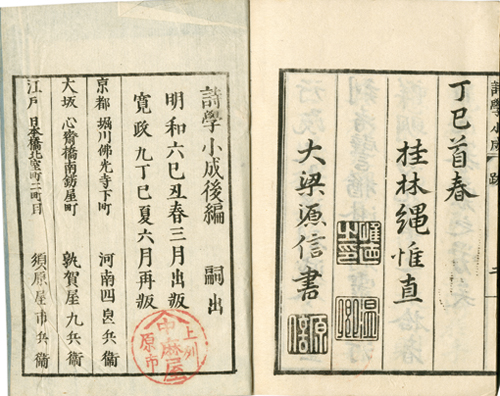 丁巳首春
桂林縄惟直
大梁源信書
詩學小成後編 嗣出
明和六巳丑春三月出版
寛政九丁巳夏六月再版
京都 堀川佛光寺下町 河南四良兵衞
大坂 心斎橋南錺屋町 敦賀屋九兵衞
江戸 日本橋北室町二町目 須原屋市兵衞
上州
中麻屋
原市